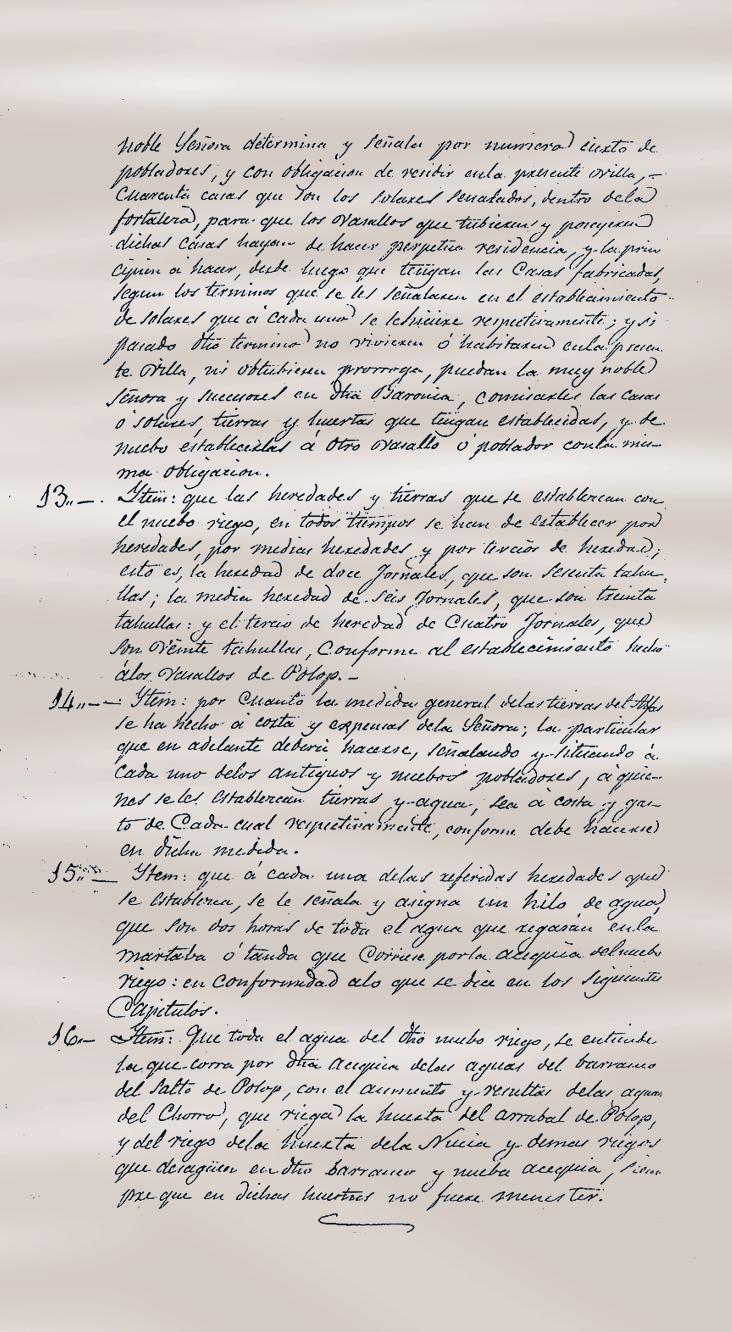 noble Señora determina y señala por numero cierto de
pobladores, y con obligacion de residir enla presente villa,
Cuarenta casas que son los solares señalados, dentro dela
fortalera, para que los vasallos que tubieren y poseyeren
dichas casas hayan de hacer perpetua residencia, y la prin
cipien à hacer, desde luego que tengan las Casas fabricadas,
segun los terminos que se les señalaren en el establecimiento
de solares que à cada uno se les hiciere respectivamente; y si
pasado dho termino no vivieren ó habitaren enla presen
te villa, ni obtubieren prorroga, puedan la muy noble
Señora y succesores en dha Baronia, comisarles las casas
ó solares, tierras y huertas que tengan establecidas, y de
nuebo establecerlas à otro vasallo ó poblador conla mis-
ma obligacion.
13,,—. Item: que las heredades y tierras que se establercan con
el nuebo riego, en todos tiempos se han de establecer por
heredades, por medias heredades y por tercios de heredad;
esto es, la heredad de doce Jornales, que son sesenta tahu-
llas; la media heredad de seis Jornales, que son treinta
tahullas: y el tercio de heredad de Cuatro Jornales, que
son veinte tahullas, Conforme al establecimiento hecho
álos vasallos de Polop.-
14,,-- Item: por Cuanto la medida general delas tierras del
se ha hecho à costa y expensas dela Señora; la particular
que en adelante deberá hacerse, señalando y situando à
cada uno delos antiguos y nuebos pobladores, à quie-
nes seles establercan tierras y agua, sea à costa y gas-
to de Cada cual respectivamente, conforme debe hacerse
en dicha medida.
15,,— Item: que à cada una delas referidas heredades que
se establerca, se le señala y asigna un hilo de agua,
que son dos horas de toda el agua que regarán enla
martaba ó tanda que Corriere porla acequia delnuebo
riego: en conformidad alo que se dice en los siguientes
Capitulos.
16- Item: Que toda el agua del dho nuebo riego, se entiende
la que corra por dha acequia delas aguas del barranco
del Salto de Polop, con el aumento y resultas delas aguas
del Chorro, que riega la huerta del arrabal de Polop,
y del riego dela huerta dela Nucia y demas riegos
que desagüen en dho barranco y nueba acequia, siem
pre que en dichas huertas no fuere menester.